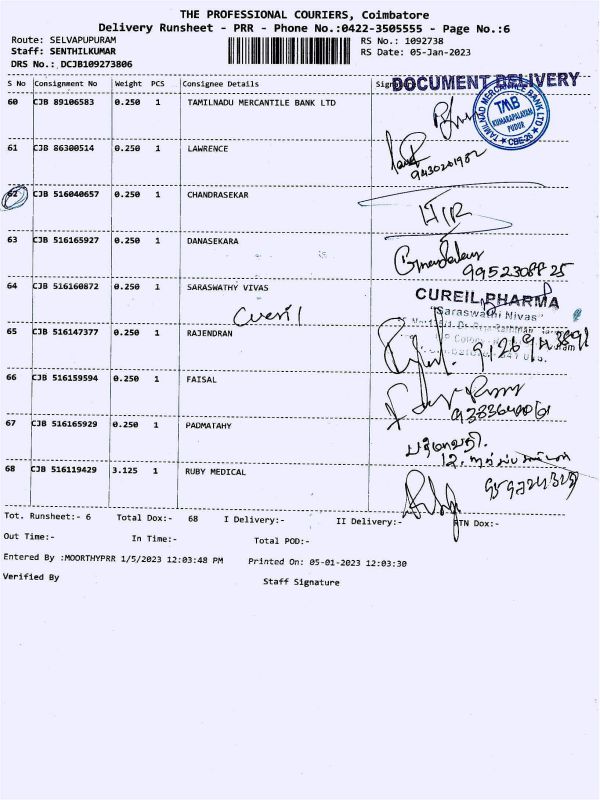 THE PROFESSIONAL COURIERS, Coimbatore
Delivery Runsheet - PRR - Phone No.:0422-3505555 - Page No.:6
Route: SELVAPUPURAM
RS No.: 1092738
Staff: SENTHILKUMAR
RS Date: 05-Jan-2023
DRS No.: DCJB109273806
S No Consignment No Weight PCS Consignee Details
DOCUMENT DELIVERY
60 CJB 89106583 0.250 1 TAMILNADU MERCANTILE BANK LTD
TAMILNAD MERCANTILE BANK LTD
TMB
KUMARAPALAYAM
PUDUR
CBE-26
61 CJB 86300514 0.250 1 LAWRENCE
9430201982
62 CJB 516040657 0.250 1 CHANDRASEKAR
63 CJB 516165927 0.250 1 DANASEKARA
9952308825
64 CJB 516160872 0.250 1 SARASWATHY VIVAS
CUREIL PHARMA
"Saraswathi Nivas"
65 CJB 516147377 0.250 1 RAJENDRAN
66 CJB 516159594 0.250 1 FAISAL
67 CJB 516165929 0.250 1 PADMATAHY
பத்மாவதி.
12,
68 CJB 516119429 3.125 1 RUBY MEDICAL
Tot. Runsheet:- 6 Total Dox:- 68 I Delivery:- II Delivery:- RTN Dox:-
Out Time:- In Time:- Total POD:-
Entered By :MOORTHYPRR 1/5/2023 12:03:48 PM Printed On: 05-01-2023 12:03:30
Verified By Staff Signature